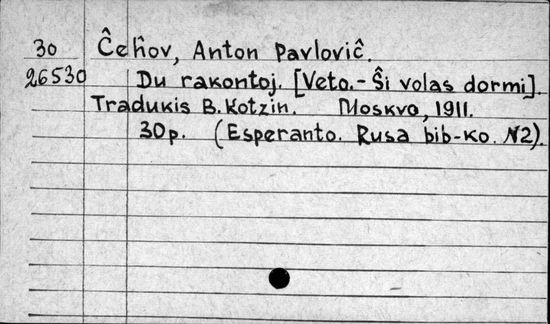 30 Ĉeĥov, Anton Pavloviĉ.
26530 Du rakontoj. [Veto.- Ŝi volas dormi].
Tradukis B. Kotzin. Moskvo, 1911.
30p. (Esperanto. Rusa bib-ko. №2).